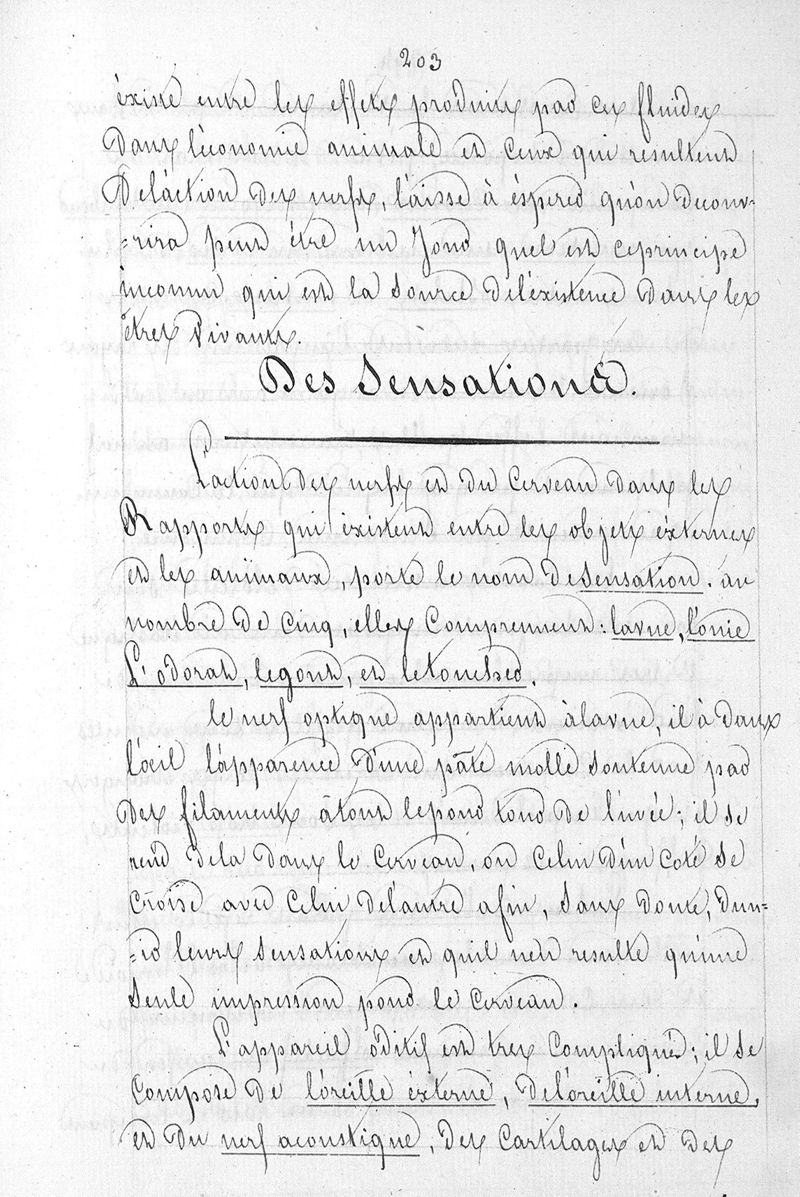 203
éxiste entre les effets produits par ces fluides
Dans l'économie animale et ceux qui resultent
De l'áction des nerfs, laisse à ésperer qu'on decouv-
-rira peut être un Jour quel est ce principe
inconnu qui est la source de l'éxistence dans les
étres vivants.
Des Sensations.
L'action des nerfs et du Cerveau dans les
Rapports qui éxistent entre les objets éxternes
et les animaux, porte le nom de sensation. au
nombre de Cinq, elles Comprennent: la vue, l'ouie
L'odorat, le gout, et le toucher.
le nerf optique appartient à la vue, il à dans
l'oeil l'apparence D'une pâte molle soutenue par
Des filaments à tout le pour tour de l'uvée; il se
rend de la dans le Cerveau, ou Celui d'un Coté se
Croise avec Celui de l'autre afin, sans doute, d'un-
-ir leurs sensations et qu'il n'en resulte qu'une
seule impression pour le Cerveau.
L'appareil oditif est tres Compliqué; il se
Compose de l'oreille éxterne, de l'oreille interne,
et du nerf acoustique, des Cartilages et des